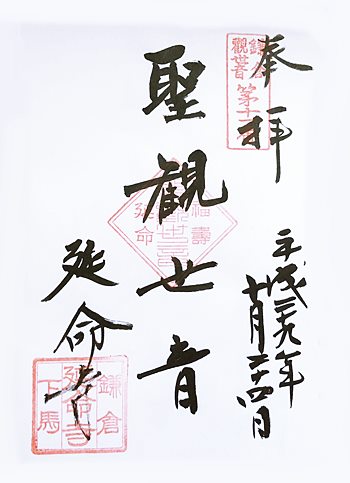 奉拝
鎌倉
觀世音
第十一
平成二十九年
十月二十四日
聖観世音
福壽
延命
延命寺
鎌倉
延命寺
下馬